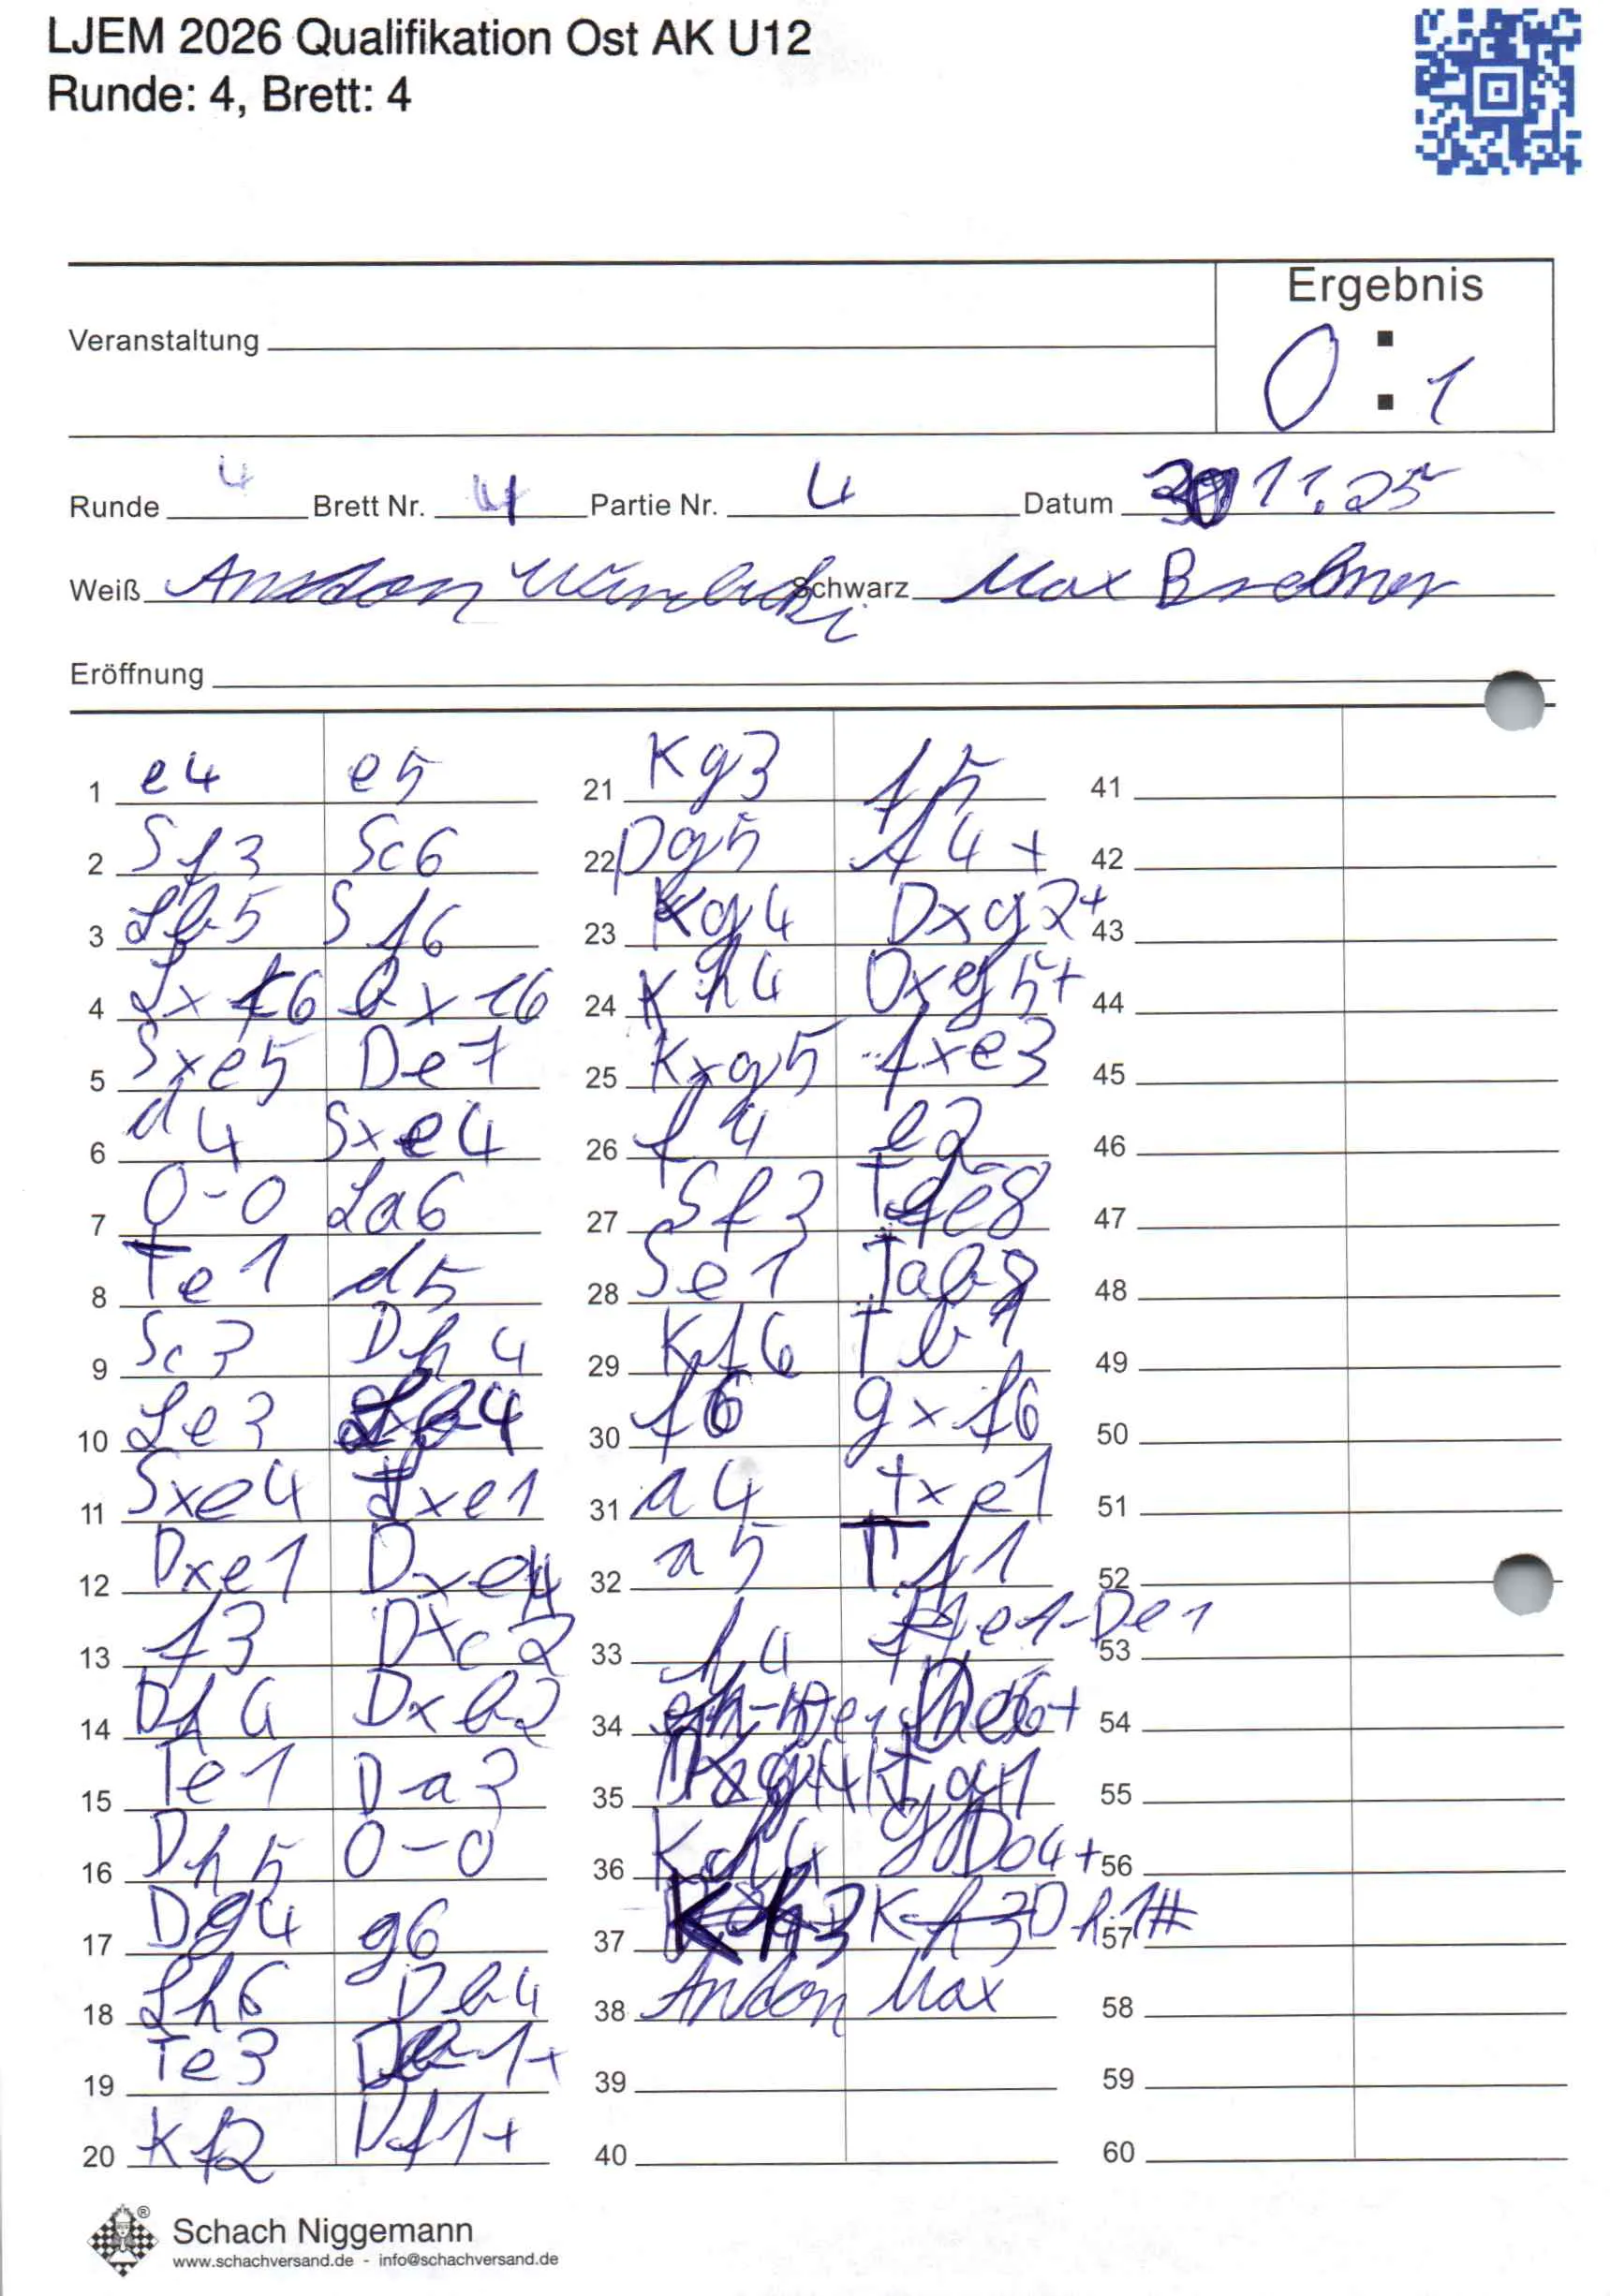 LJEM 2026 Qualifikation Ost AK U12
Runde: 4, Brett: 4
Ergebnis
0 : 1
Veranstaltung
Runde 4 Brett Nr. 4 Partie Nr. 4 Datum 30 11.25
Weiß Schwarz Max
Eröffnung
1 e4 e5
2 Sf3 Sc6
3 Lb5 Sf6
4 Lxc6 bxc6
5 Sxe5 De7
6 d4 Sxe4
7 0-0 La6
8 Te1 d5
9 Sc3 Dh4
10 Le3 Lb4
11 Sxe4 Lxe1
12 Dxe1 Dxe4
13 f3 Dxc2
14 Dh4 Dxb2
15 Te1 Da3
16 Dh5 0-0
17 Dg4 g6
18 Lh6 Db4
19 Te3 Db1+
20 Kf2 Df1+
21 Kg3 f5
22 Dg5 f4+
23 Kg4 Dxg2+
24 Kh4 Dxg5+
25 Kxg5 fxe3
26 f4 e2
27 Sf3 Tfe8
28 Se1 Tab8
29 Kf6 Tb1
30 f6 gxf6
31 a4 Txe1
32 a5 Tf1
33 h4 e1-De1
34
35 Tg1
36
37 Kh3 Dh1#
38 Andon Max
39
40
41
42
43
44
45
46
47
48
49
50
51
52
53
54
55
56
57
58
59
60
Schach Niggemann
www.schachversand.de - info@schachversand.de